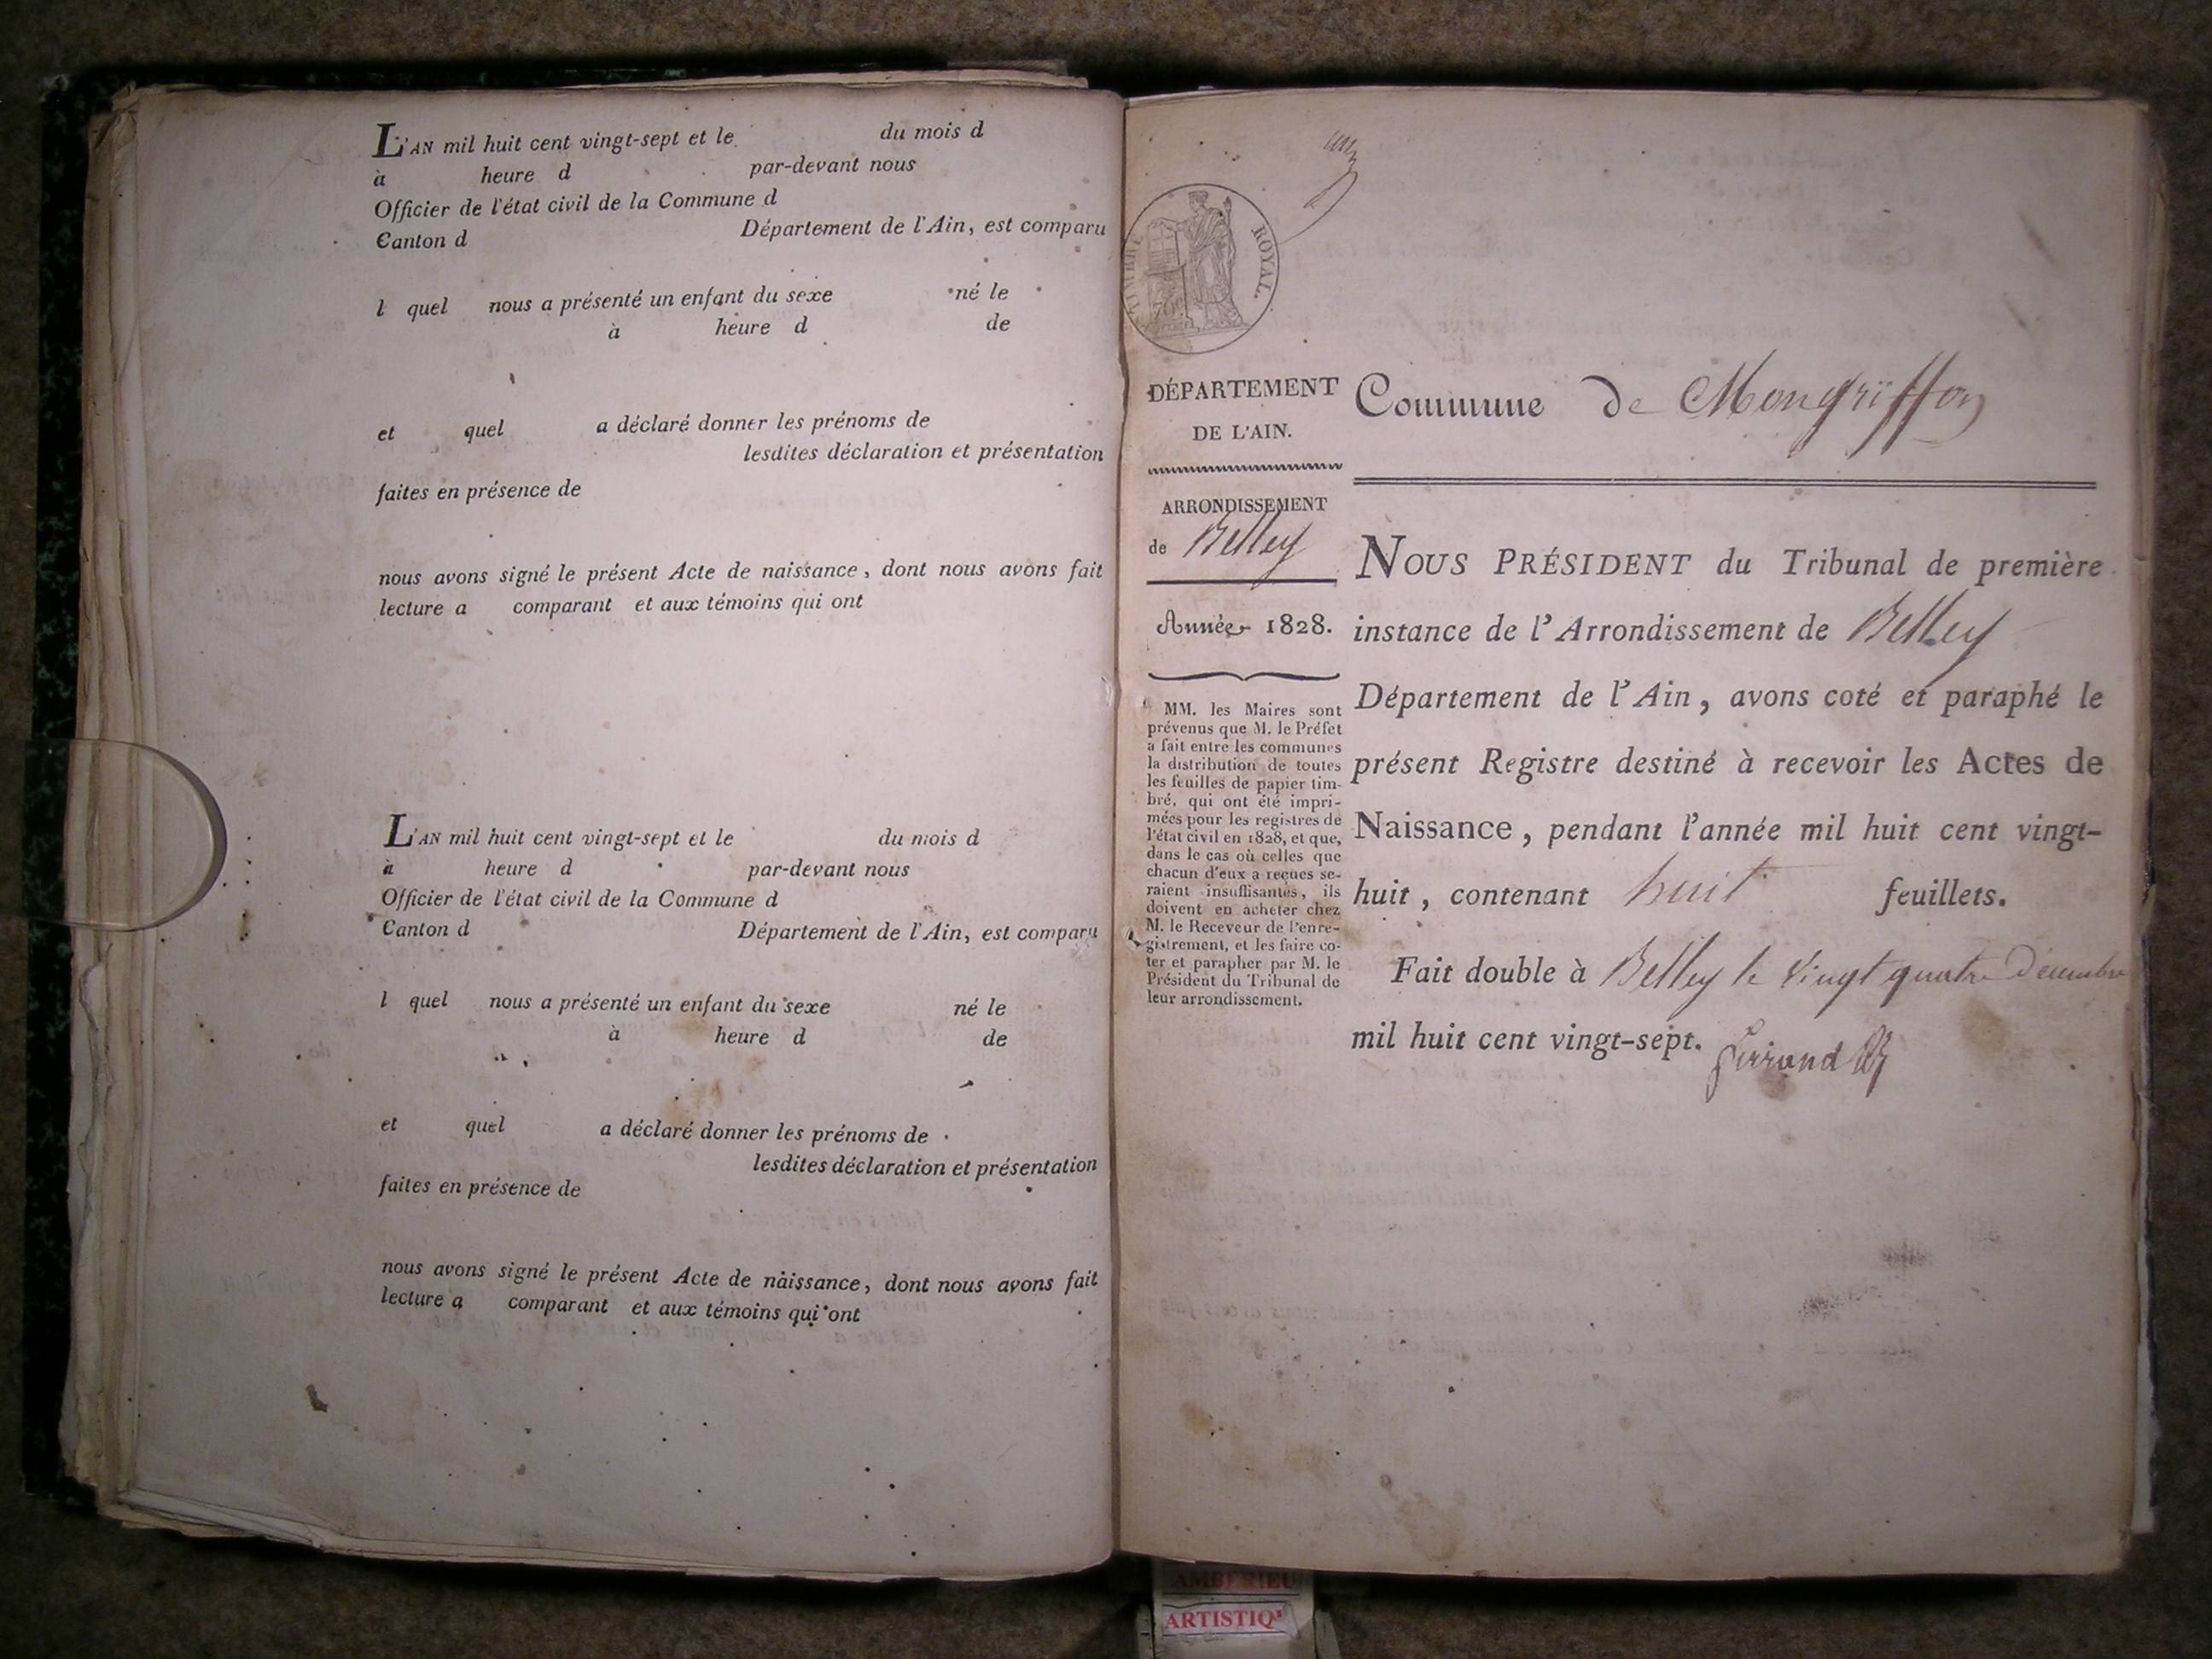 L'AN mil huit cent vingt-sept et le du mois d
à heure d par-devant nous
Officier de l'état civil de la Commune d
Canton d Département de l'Ain, est comparu
l quel nous a présenté un enfant du sexe né le
à heure d de
et quel a déclaré donner les prénoms de
lesdites déclaration et présentation
faites en présence de
nous avons signé le présent Acte de naissance, dont nous avons fait
lecture a comparant et aux témoins qui ont
L'AN mil huit cent vingt-sept et le du mois d
à heure d par-devant nous
Officier de l'état civil de la Commune d
Canton d Département de l'Ain, est comparu
l quel nous a présenté un enfant du sexe né le
à heure d de
et quel a déclaré donner les prénoms de
lesdites déclaration et présentation
faites en présence de
nous avons signé le présent Acte de naissance, dont nous avons fait
lecture a comparant et aux témoins qui ont
un
TIMBRE ROYAL.
DÉPARTEMENT
DE L'AIN.
ARRONDISSEMENT
de Belley
Année 1828.
MM. les Maires sont
prévenus que M. le Préfet
a fait entre les communes
la distribution de toutes
les feuilles de papier tim-
bré, qui ont été impri-
mées pour les registres de
l'état civil en 1828, et que,
dans le cas où celles que
chacun d'eux a reçues se-
raient insuffisantes, ils
doivent en acheter chez
M. le Receveur de l'enre-
gistrement, et les faire co-
ter et parapher par M. le
Président du Tribunal de
leur arrondissement.
Commune de Mongriffon
NOUS PRÉSIDENT du Tribunal de première
instance de l'Arrondissement de Belley
Département de l'Ain, avons coté et paraphé le
présent Registre destiné à recevoir les Actes de
Naissance, pendant l'année mil huit cent vingt-
huit, contenant huit feuillets.
Fait double à Belley le vingt quatre Décembre
mil huit cent vingt-sept.
AMBERIEU
ARTISTIQ